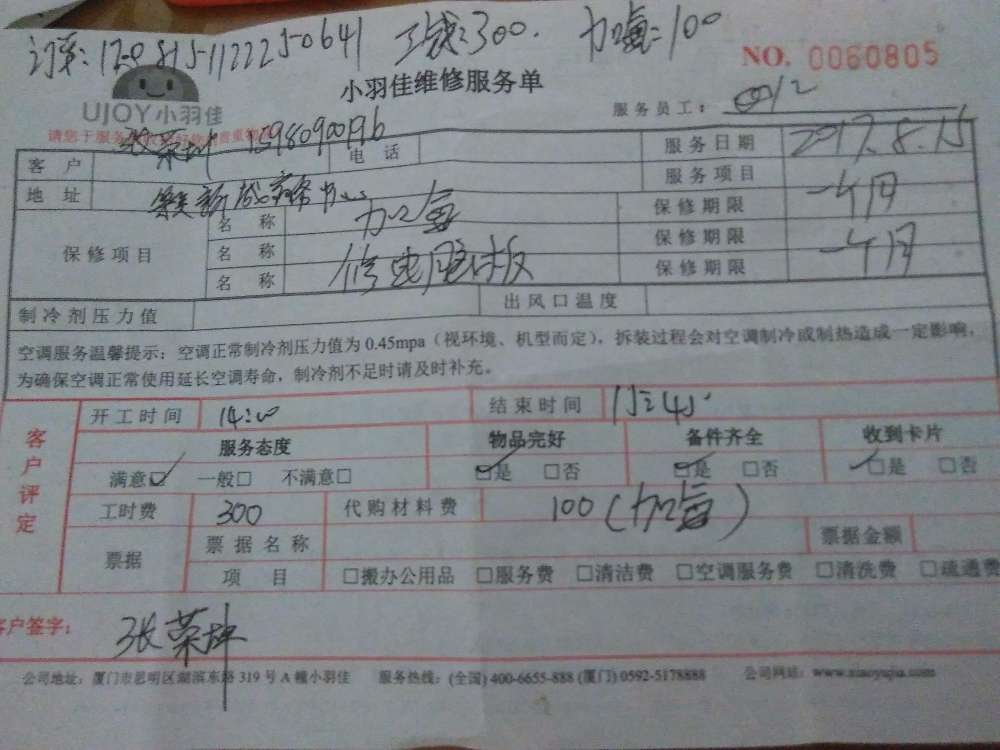 工钱:300. 加氟:100
NO. 0060805
小羽佳维修服务单
UJOY小羽佳
服务员工:
请您于服务
客户 张荣坤 电话 服务日期 2017.8.15
地址 服务项目
保修项目 名称 加氟 保修期限 一个月
名称 保修期限
名称 修电脑板 保修期限 一个月
制冷剂压力值 出风口温度
空调服务温馨提示:空调正常制冷剂压力值为 0.45mpa(视环境、机型而定),拆装过程会对空调制冷或制热造成一定影响,
为确保空调正常使用延长空调寿命,制冷剂不足时请及时补充。
客户评定
开工时间 结束时间
服务态度 物品完好 备件齐全 收到卡片
满意☑ 一般□ 不满意□ ☑是 □否 ☑是 □否 ☑是 □否
工时费 300 代购材料费 100(加氟)
票据 票据名称 票据金额
项目 □搬办公用品 □服务费 □清洁费 □空调服务费 □清洗费 □疏通费
客户签字: 张荣坤
公司地址:厦门市思明区湖滨东路 319 号 A 幢小羽佳 服务热线:(全国) 400-6655-888 (厦门) 0592-5178888 公司网站:www.xiaoyujia.com